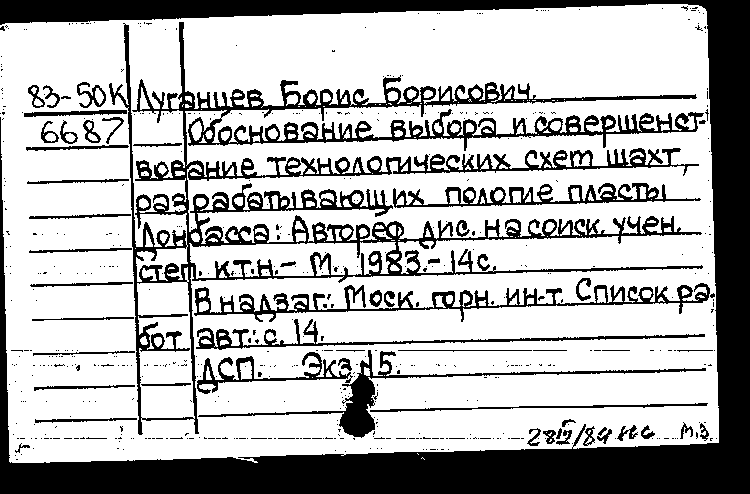 83-50К Луганцев, Борис Борисович.
6687 Обоснование выбора и совершенст-
вование технологических схем шахт,
разрабатывающих пологие пласты
Донбасса: Автореф. дис. на соиск. учен.
степ. к.т.н.- М., 1983.-14с.
В надзаг.: Моск. горн. ин-т. Список ра-
бот авт.: с. 14.
ДСП. Экз 15.